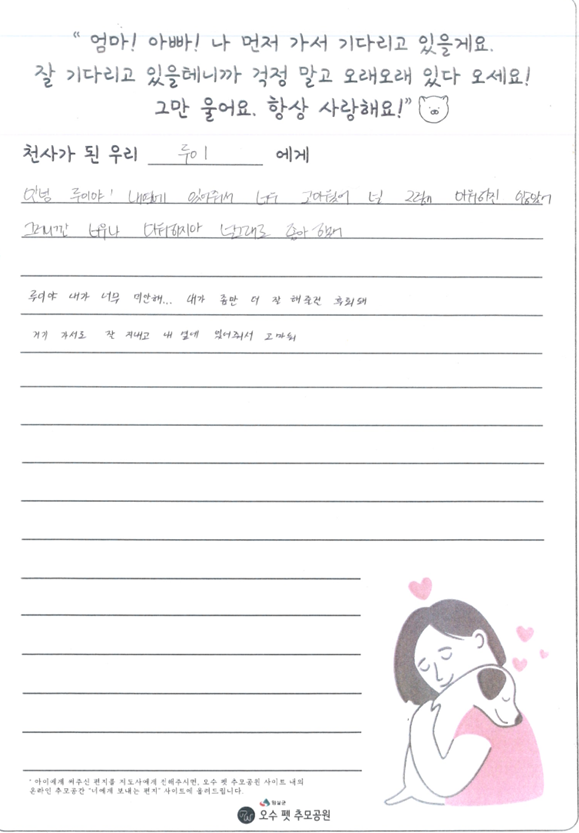 “ 엄마! 아빠! 나 먼저 가서 기다리고 있을게요.
잘 기다리고 있을테니까 걱정 말고 오래오래 있다 오세요!
그만 울어요. 항상 사랑해요!”
천사가 된 우리 루이 에게
안녕 루이야! 내옆에 있어줘서 너무 고마웠어 넌
그러니깐
루이야 내가 너무 미안해... 내가 좀만 더 잘 해줄걸 후회돼
거기 가서도 잘 지내고 내 옆에 있어줘서 고마워
* 아이에게 써주신 편지를 지도사에게 전해주시면, 오수 펫 추모공원 사이트 내의
온라인 추모공간 "너에게 보내는 편지" 사이트에 올려드립니다.
임실군
오수 펫 추모공원